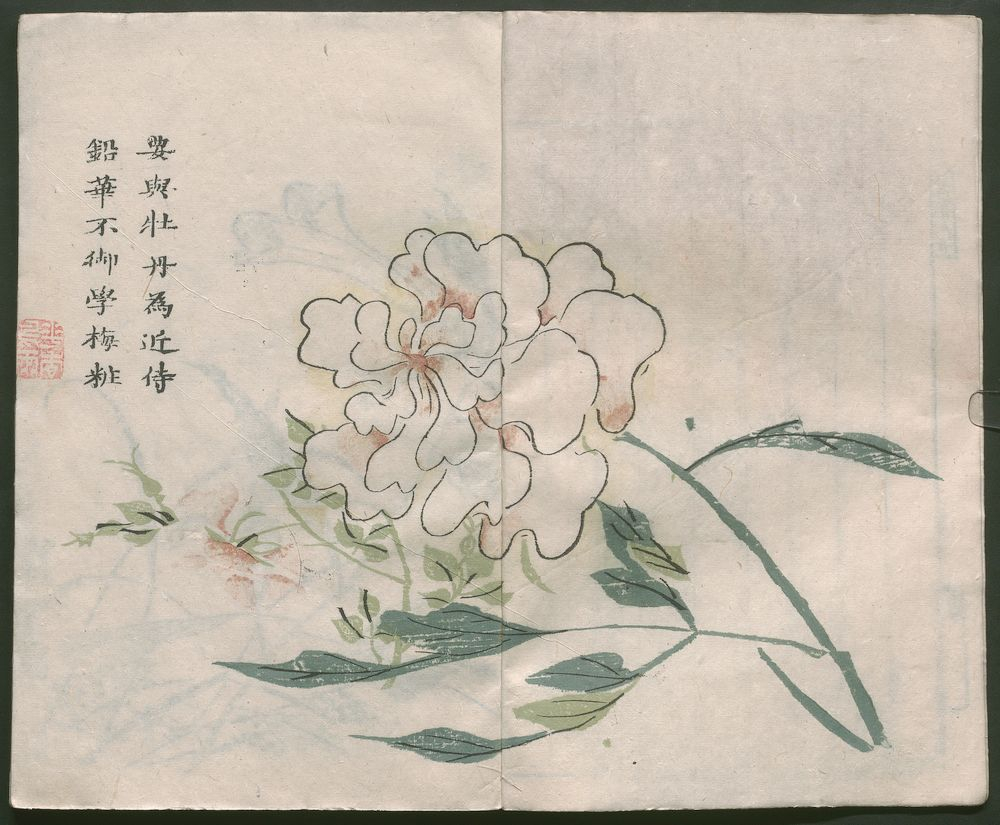 要與牡丹為近侍
鉛華不御學梅粧